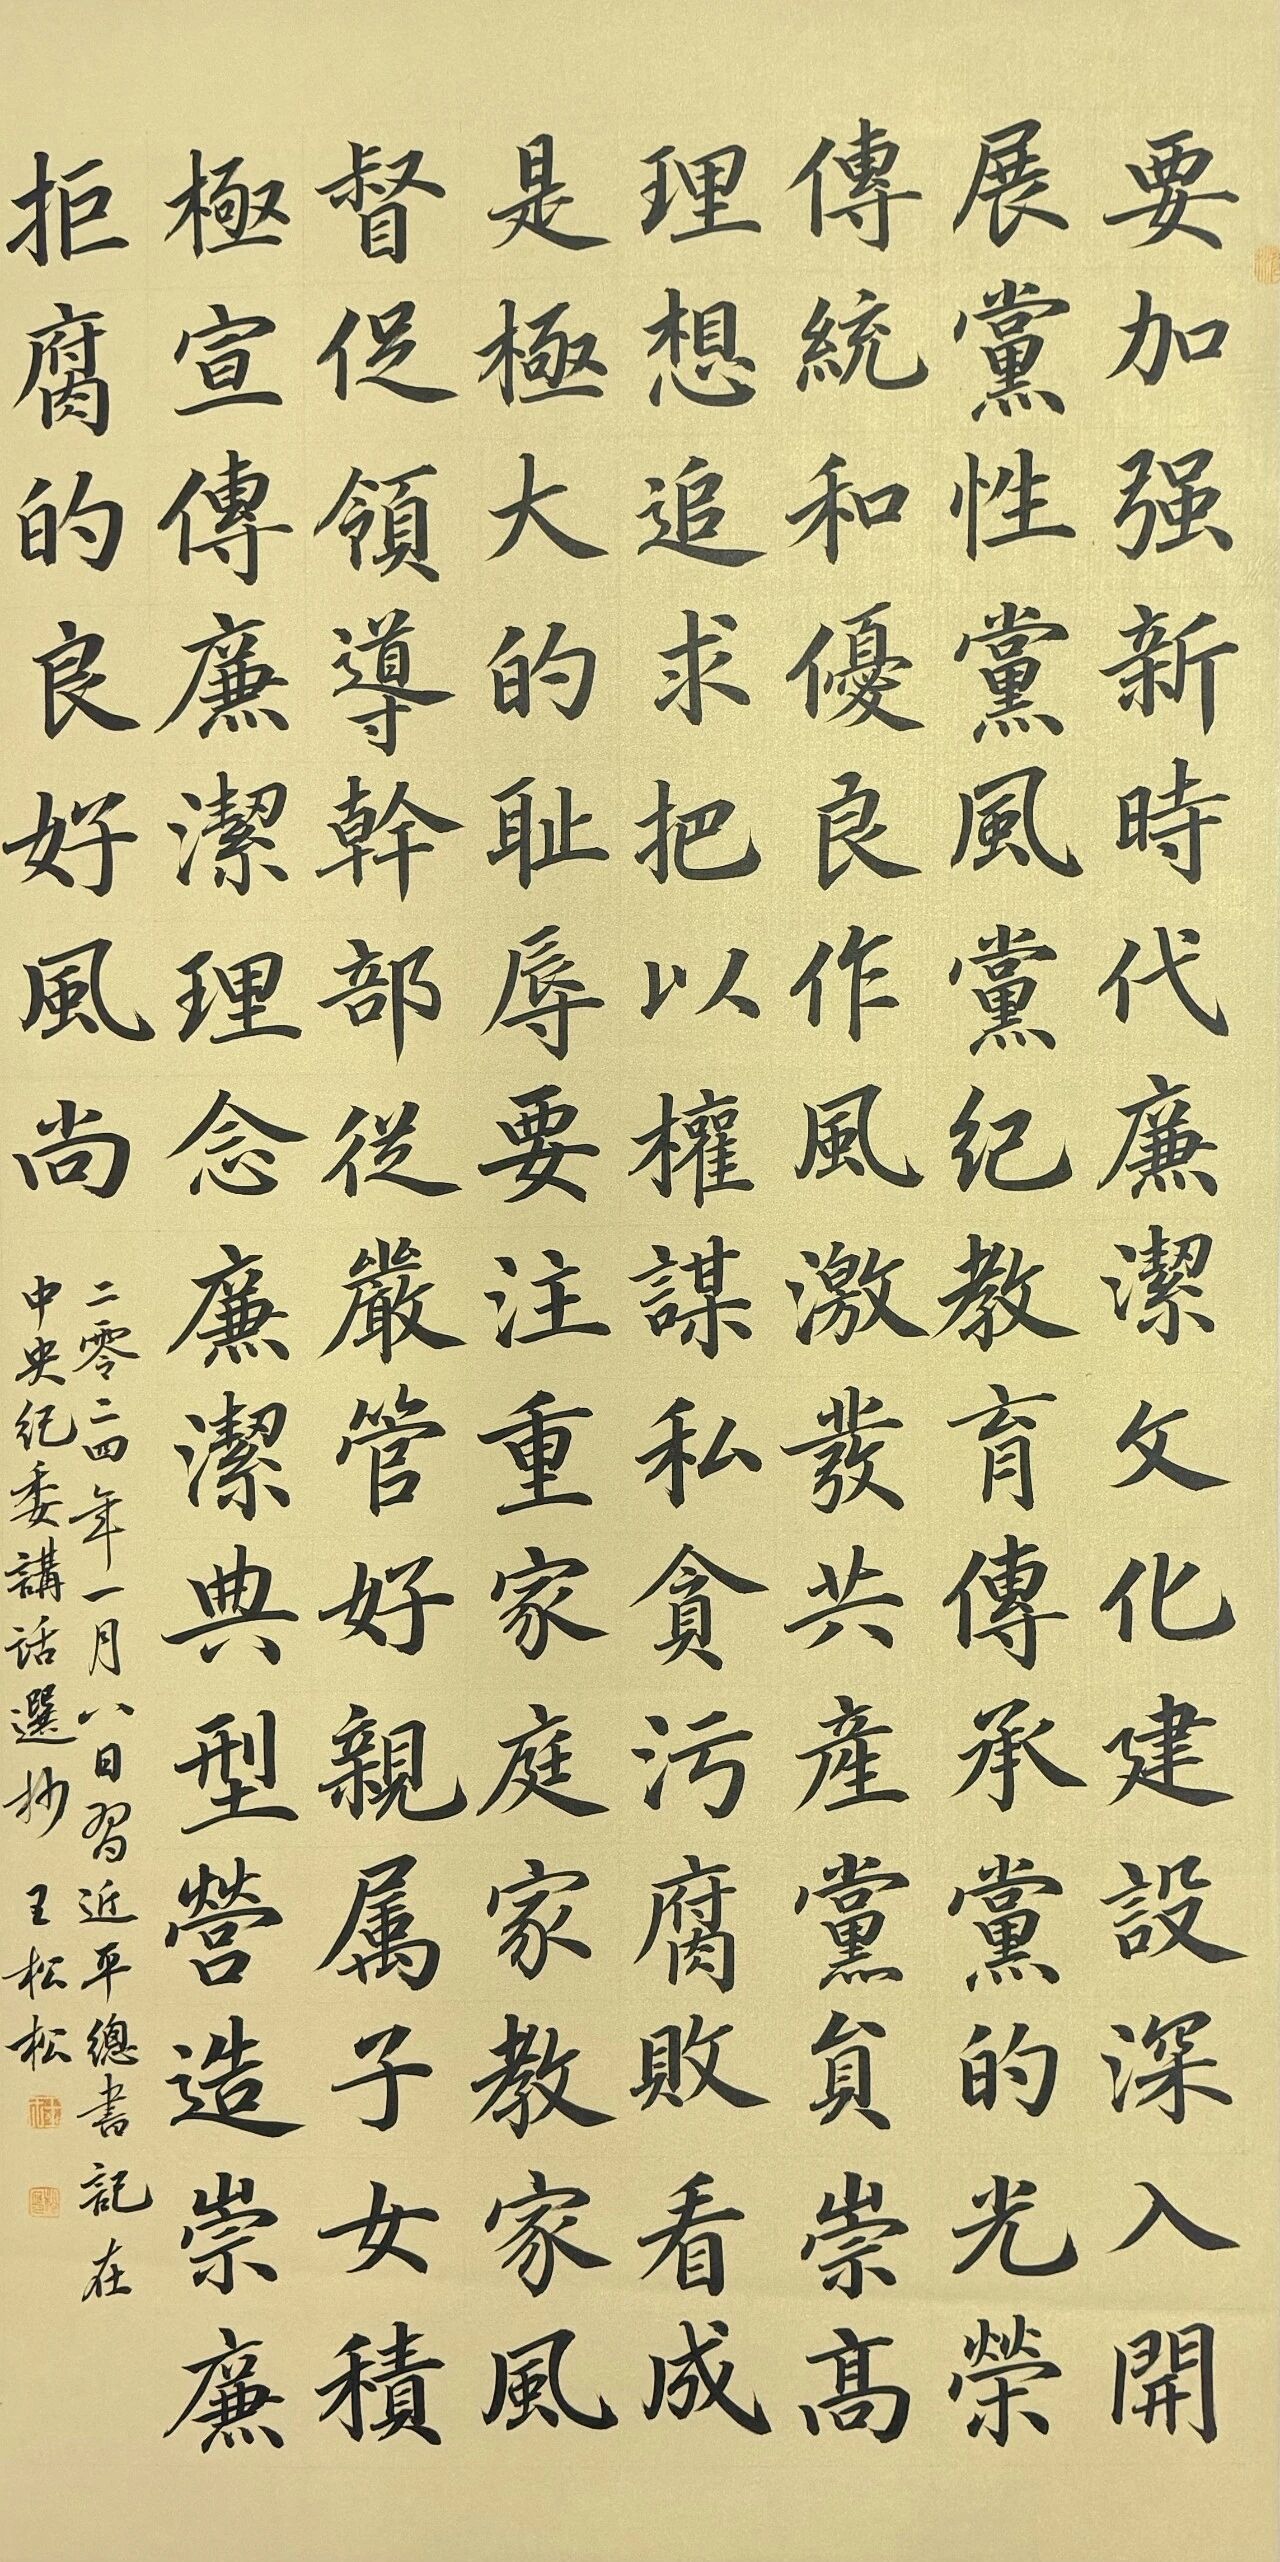 要加强新時代廉潔文化建設深入開
展黨性黨風黨紀教育傳承黨的光榮
傳統和優良作風激發共産黨員崇高
理想追求把以權謀私貪污腐敗看成
是極大的耻辱要注重家庭家教家風
督促領導幹部從嚴管好親属子女積
極宣傳廉潔理念廉潔典型營造崇廉
拒腐的良好風尚
二零二四年一月八日習近平總書記在
中央纪委講話選抄 王松松